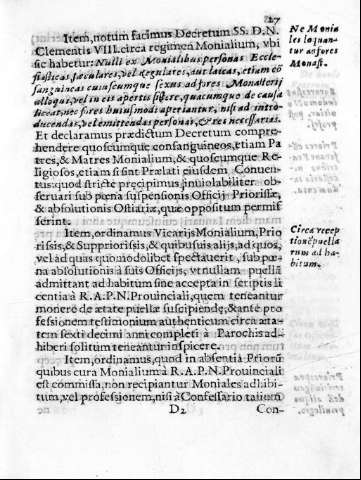 27
Item, notum facimus Decretum SS. D.N.
Clementis VIII. circa regimen Monialium, vbi
sic habetur: Nulli ex Monialibus personas Eccle-
siasticas sæculares, vel Regulares, aut laicas, etiam cō
sanguineas cuiuscumque sexus ad fores Monasterij
alloqui, vel in eis apertis sistere, quacumque de causa
liceat, nec fores huiusmodi aperiantur, nisi ad intro-
ducendas, vel emittendas personas, & res necessarias.
Et declaramus prædictum Decretum compre-
hendere quoscumque consanguineos, etiam Pa
tres, & Matres Monialium, & quoscumque Re-
ligiosos, etiam si sint Prælati eiusdem Conuen-
tus: quod strictè præcipimus inuiolabiliter ob-
seruari sub pœna suspensionis Officij Priorissæ,
& absolutionis Ostiariæ, quæ oppositum permis
serint.
Item, ordinamus Vicarijs Monialium, Prio
rissis, & Suppriorissis, & quibusuis alijs, ad quos,
vel ad quas quomodolibet spectauerit, sub pœ-
na absolutionis à suis Officijs, vt nullam puellā
admittant ad habitum sine accepta in scriptis li
centia à R.A.P.N. Prouinciali, quem teneantur
monere de ætate puellæ suscipiendę, & ante pro
fessionem testimonium authenticum circa æta-
tem sexti decimi anni completi à Parochis ad-
hiberi solitum teneantur inspicere.
Item, ordinamus, quod in absentia Priorū
quibus cura Monialium à R.A.P.N. Prouinciali
est commissa, non recipiantur Moniales ad habi-
tum, vel professionem, nisi à Confessario talium
D2 Con-
Ne Monia
les loquan-
tur ad fores
Monast.
Circa recep
tionē puella
rum ad ha-
bitum.